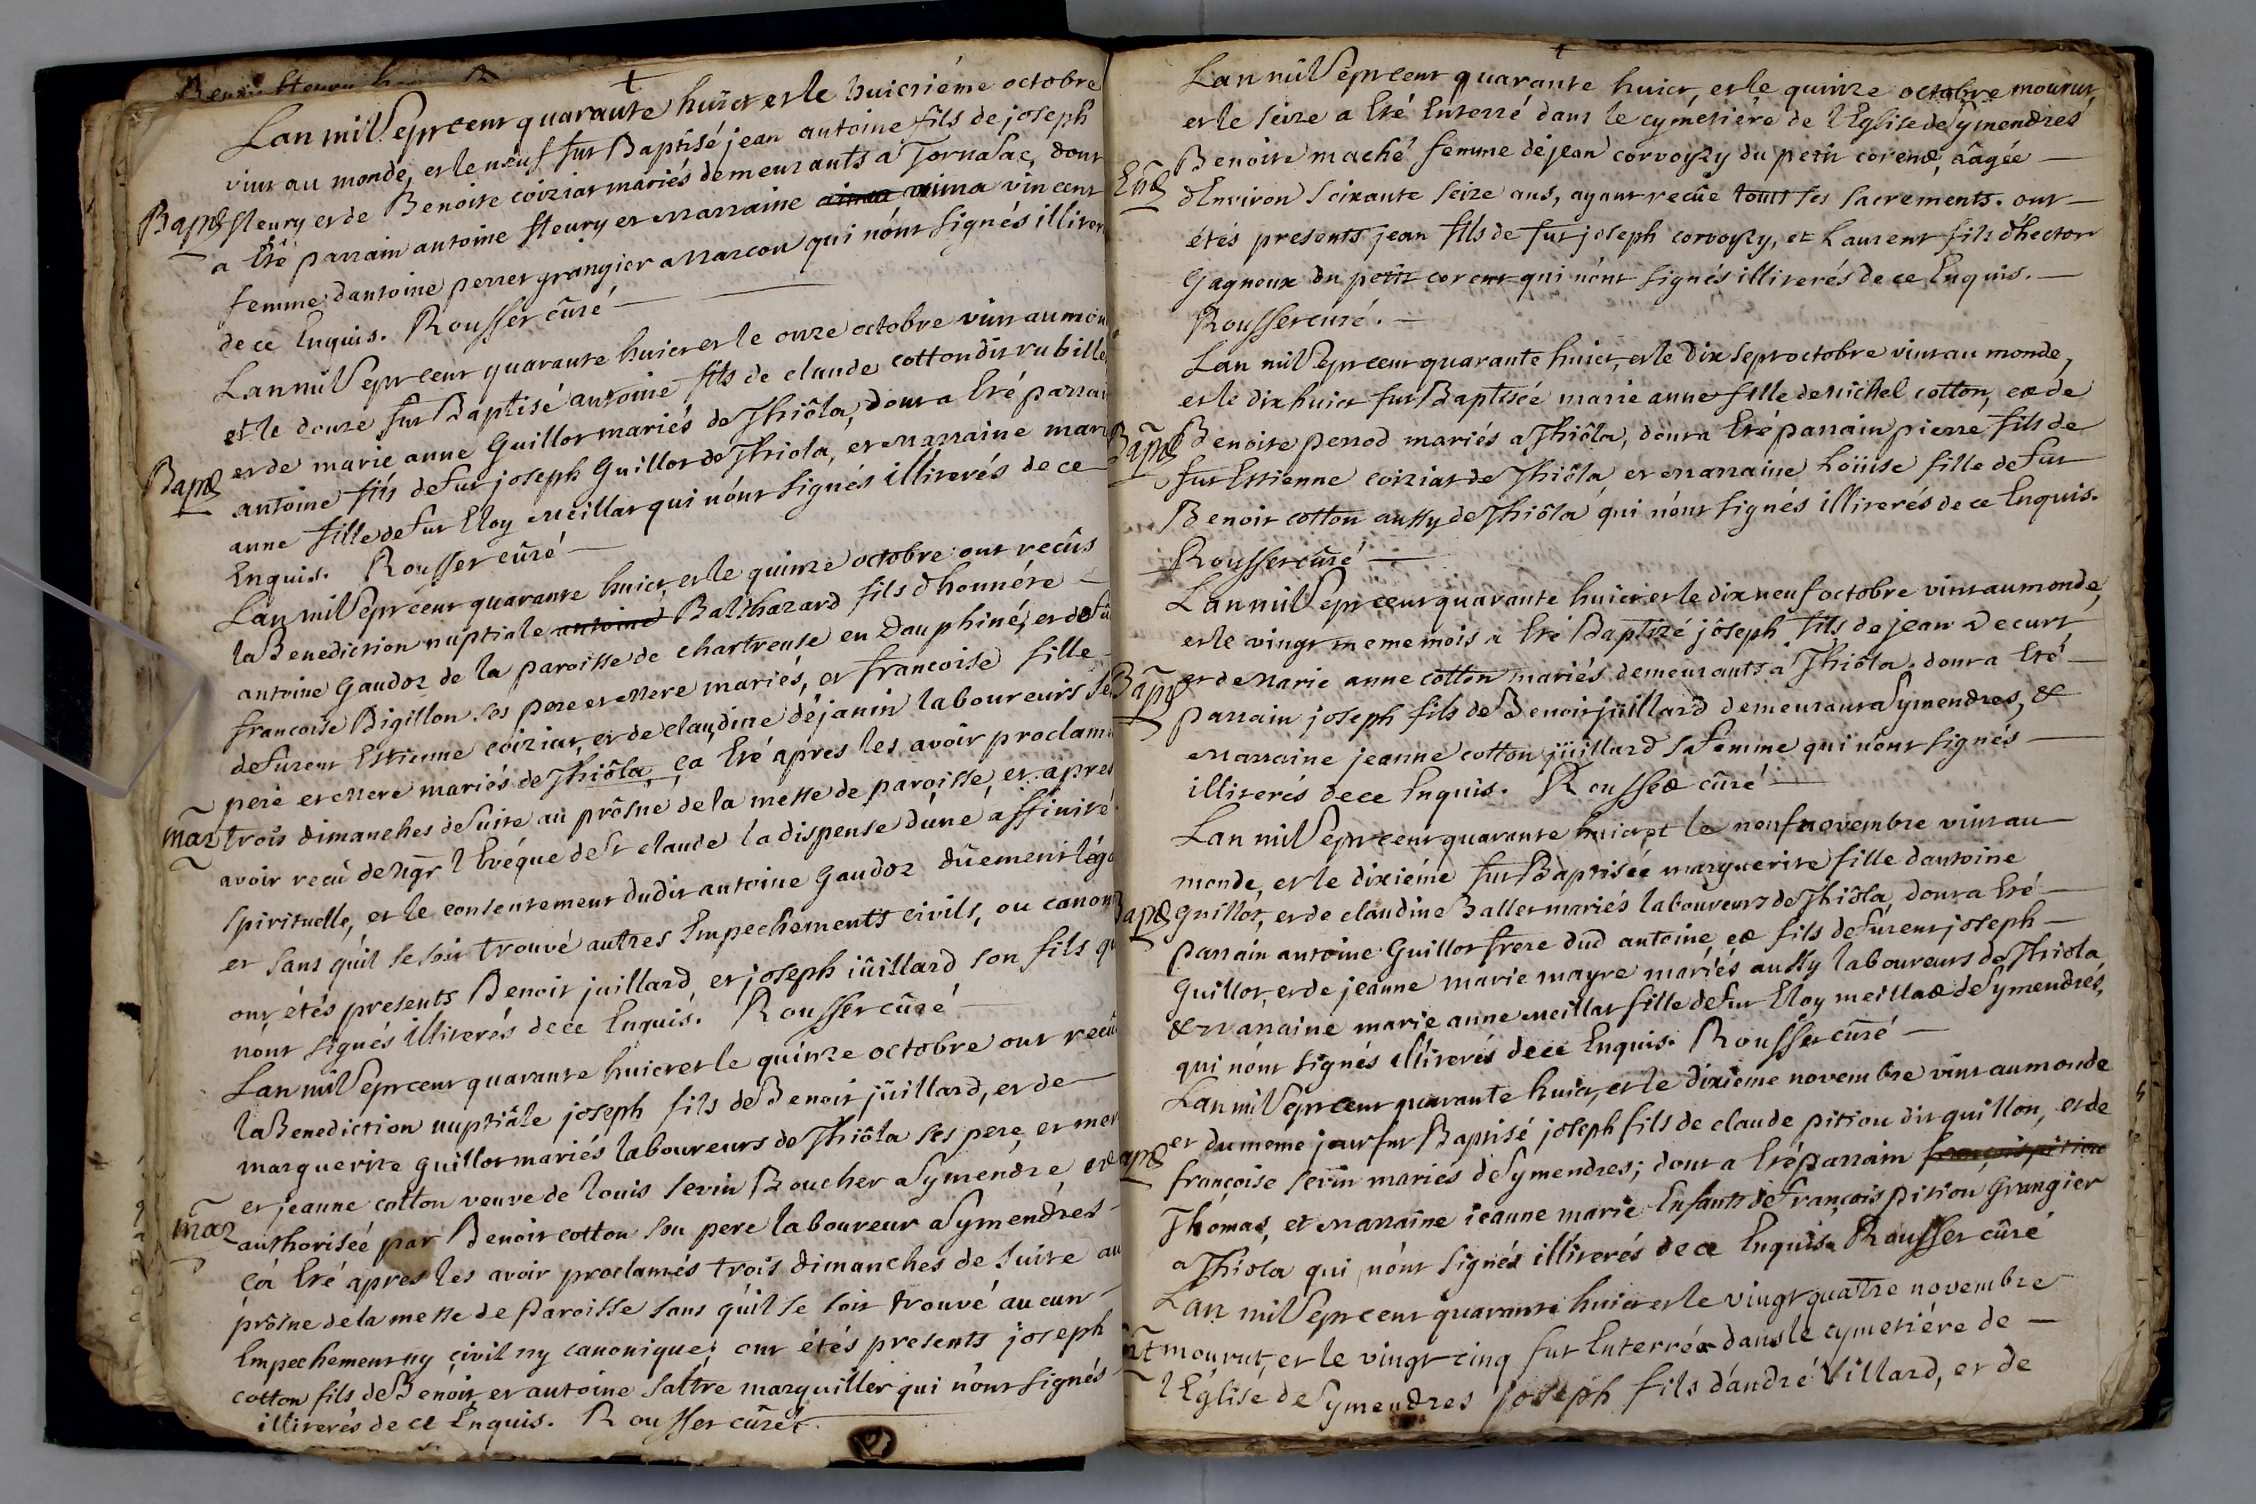 Lan mil Sept cent quarante huict et le huictiéme octobre
vint au monde, et le neuf fut Baptisé jean antoine fils de joseph
Bapt fleury et de Benoite coiziat mariés demeurants a Tornasac, dont
a Eté parrain antoine fleury et marraine aima aima vincent
femme dantoine perret grangier a marcou qui nónt signés illiter
de ce Enquis. Rousset cûré
Lan mil Sept cent quarante huict et le onze octobre vint au mon
et le douze fut Baptisé antoine fils de claude cotton dit rubille
et de marie anne Guillot mariés de Thiôla, dont a Eté parrai
Bapt antoine fils de fut joseph Guillot de Thiola, et marraine mari
anne fille de fut Eloy meillat qui nónt signés illiterés de ce
Enquis. Rousset cûré
Lan mil Sept cent quarante huict, et le quinze octobre ont recûs
la Benediction nuptiale antoine Balthazard fils d'honnére
antoine Gaudoz de la paroisse de chartreuse en Dauphiné, et de fû
francoise Bigillon ses pere et mere mariés, et francoise fille
defurent Estienne coiziat, et de claudine déjanin laboureurs se
pere et mere mariés de Thiôla, ça Eté apres les avoir proclam
mar trois dimanches de suite au prôsne de la messe de paroisse, et apres
avoir recû de Ngr l'Evéque de St claude la dispense dúne affinité
spirituelle, et le consentement dudit antoine Gaudoz dûement léga
et sans quil se soit trouvé autres Empechements civils, ou canon
ont étés presents Benoit juillard, et joseph jûillard son fils qu
nónt signés illiterés de ce Enquis. Rousset cûré
Lan mil Sept cent quarante huict et le quinze octobre ont recû
la Benediction nuptiâle joseph fils de Benoit jüillard, et de
marguerite guillot mariés laboureurs de Thiôla ses pere, et mer
et jeanne cotton veuve de louis sevin Boucher a Symendre, et
mar authorisée par Benoit cotton son pere laboureur a Symendres
ça Eté apres les avoir proclamés trois dimanches de suite au
prôsne de la messe de Paroisse sans quil se soit trouvé aucun
Empechement ny civil ny canonique; ont étés presents joseph
cotton fils de Benoit et antoine saltre marguillier qui nónt signés
illiterés de ce Enquis. Rousset cûré
Lan mil Sept cent quarante huict, et le quinze octobre mourut,
et le seize a Eté Enterré dans le cymetiére de lEglise de Symendres
Benoite maché femme de jean corvoysy du petit corent, âagée
Ent dEnviron soixante seize ans, ayant recûe tous ses sacrements. ont
étés presents jean fils de fut joseph corvoysy, et Laurent fils dhector
Gagneux du petit corent qui nónt signés illiterés de ce Enquis.
Rousset curé.
Lan mil Sept cent quarante huict, et le dix sept octobre vint au monde,
et le dix huict fut Baptisée marie anne fille de michel cotton, et de
Bapt Benoite perrod mariés a Thiôla, dont a Eté parrain pierre fils de
fut Estienne coiziat de Thiôla et marraine Loüise fille de fut
Benoit cotton aussy de Thiôla qui nónt signés illiterés de ce Enquis.
Rousset cûré
Lan mil Sept cent quarante huict et le dix neuf octobre vint au monde,
et le vingt meme mois a Eté Baptizé jôseph fils de jean Decurt
Bapt et de marie anne cotton mariés demeurants a Thiôla. dont a Eté
parrain joseph fils de Benoit jüillard demeurant a Symendres, &
marraine jeanne cotton jüillard sa femme qui nónt signés
illiterés de ce Enquis. Rousset cûré
Lan mil Sept cent quarante huict et le neuf novembre vint au
monde, et le dixiéme fut Baptisée marguerite fille dantoine
Bapt guillot, et de claudine Ballet mariés laboureurs de Thiôla, dont a Eté
parrain antoine Guillot frere dud antoine, et fils defurent joseph
Guillot, et de jeanne marie mayre mariés aussy laboureurs de Thiola
& marraine marie anne meillat fille de fut Eloy meillat de Symendrés,
qui nónt signés illiterés de ce Enquis. Rousset cûré
Lan mil Sept cent quarante huict, et le dixieme novembre vint au monde
et du meme jour fut Baptisé joseph fils de claude pition dit quillon, et de
apt françoise sevin mariés de Symendres; dont a Eté parrain françois pition
Thomas, et marraine jeanne marie Enfants de françois pition Grangier
a Thiola qui nónt signés illiterés de ce Enquis. Rousset cûré
Lan mil Sept cent quarante huict et le vingt quatre novembre
nt mourut, et le vingt cinq fut Enterrée dans le cymetiére de
lEglise de Symendres joseph fils dándré Villard, et de